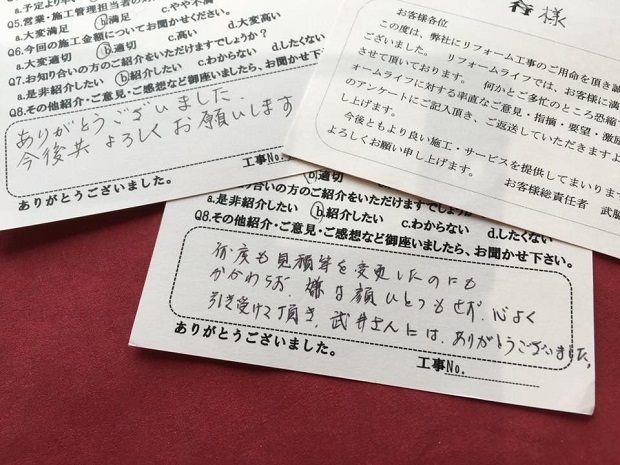 a.予定より早い
Q5.営業・施工管理担当者の
a.大変満足 b.満足 c.やや不満
Q6.今回の施工金額についてお聞かせください。
a.大変適切 b.適切 c.高い d.大変高い
Q7.お知り合いの方のご紹介をいただけますでしょうか?
a.是非紹介したい b.紹介したい c.わからない d.したくない
Q8.その他紹介・ご意見・ご感想など御座いましたら、お聞かせ下
ありがとうございました.
今後共 よろしく お願いします
工事No.
ありがとうございました。
様
お客様各位
この度は、弊社にリフォーム工事のご用命を頂き誠
ございました。 リフォームライフでは、お客様に満
させて頂いております。 何かとご多忙のところ恐縮
ォームライフに対する率直なご意見・指摘・要望・激励
のアンケートにご記入頂き、ご返送していただきますよ
し上げます。
今後ともより良い施工・サービスを提供してまいります
よろしくお願い申し上げます。
お客様総責任者 武
b.適切
い合いの方のご紹介をいただけますでしょうか
a.是非紹介したい b.紹介したい c.わからない d.したくない
Q8.その他紹介・ご意見・ご感想など御座いましたら、お聞かせ下さい。
何度も見積等を変更したのにも
かかわらず、嫌な顔ひとつもせず、心よく
引き受けて頂き、武井さんには、ありがとうございました。
ありがとうございました。
工事No.